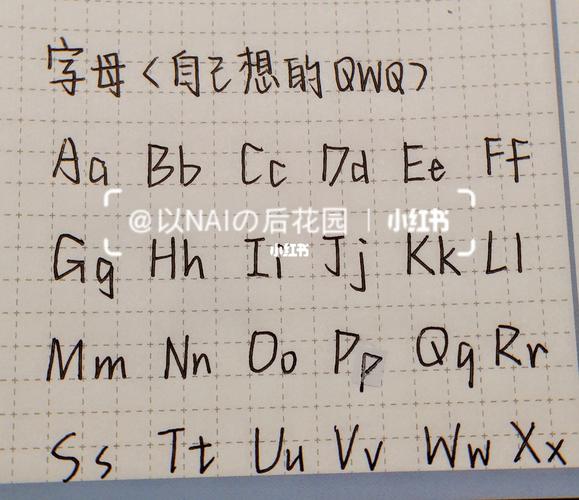 字母〈自己想的QWQ〉
Aa Bb Cc Dd Ee Ff
@以NAIの后花园 | 小红书
小红书
Gg Hh Ii Jj Kk Ll
Mm Nn Oo Pp Qq Rr
Ss Tt Uu Vv Ww Xx